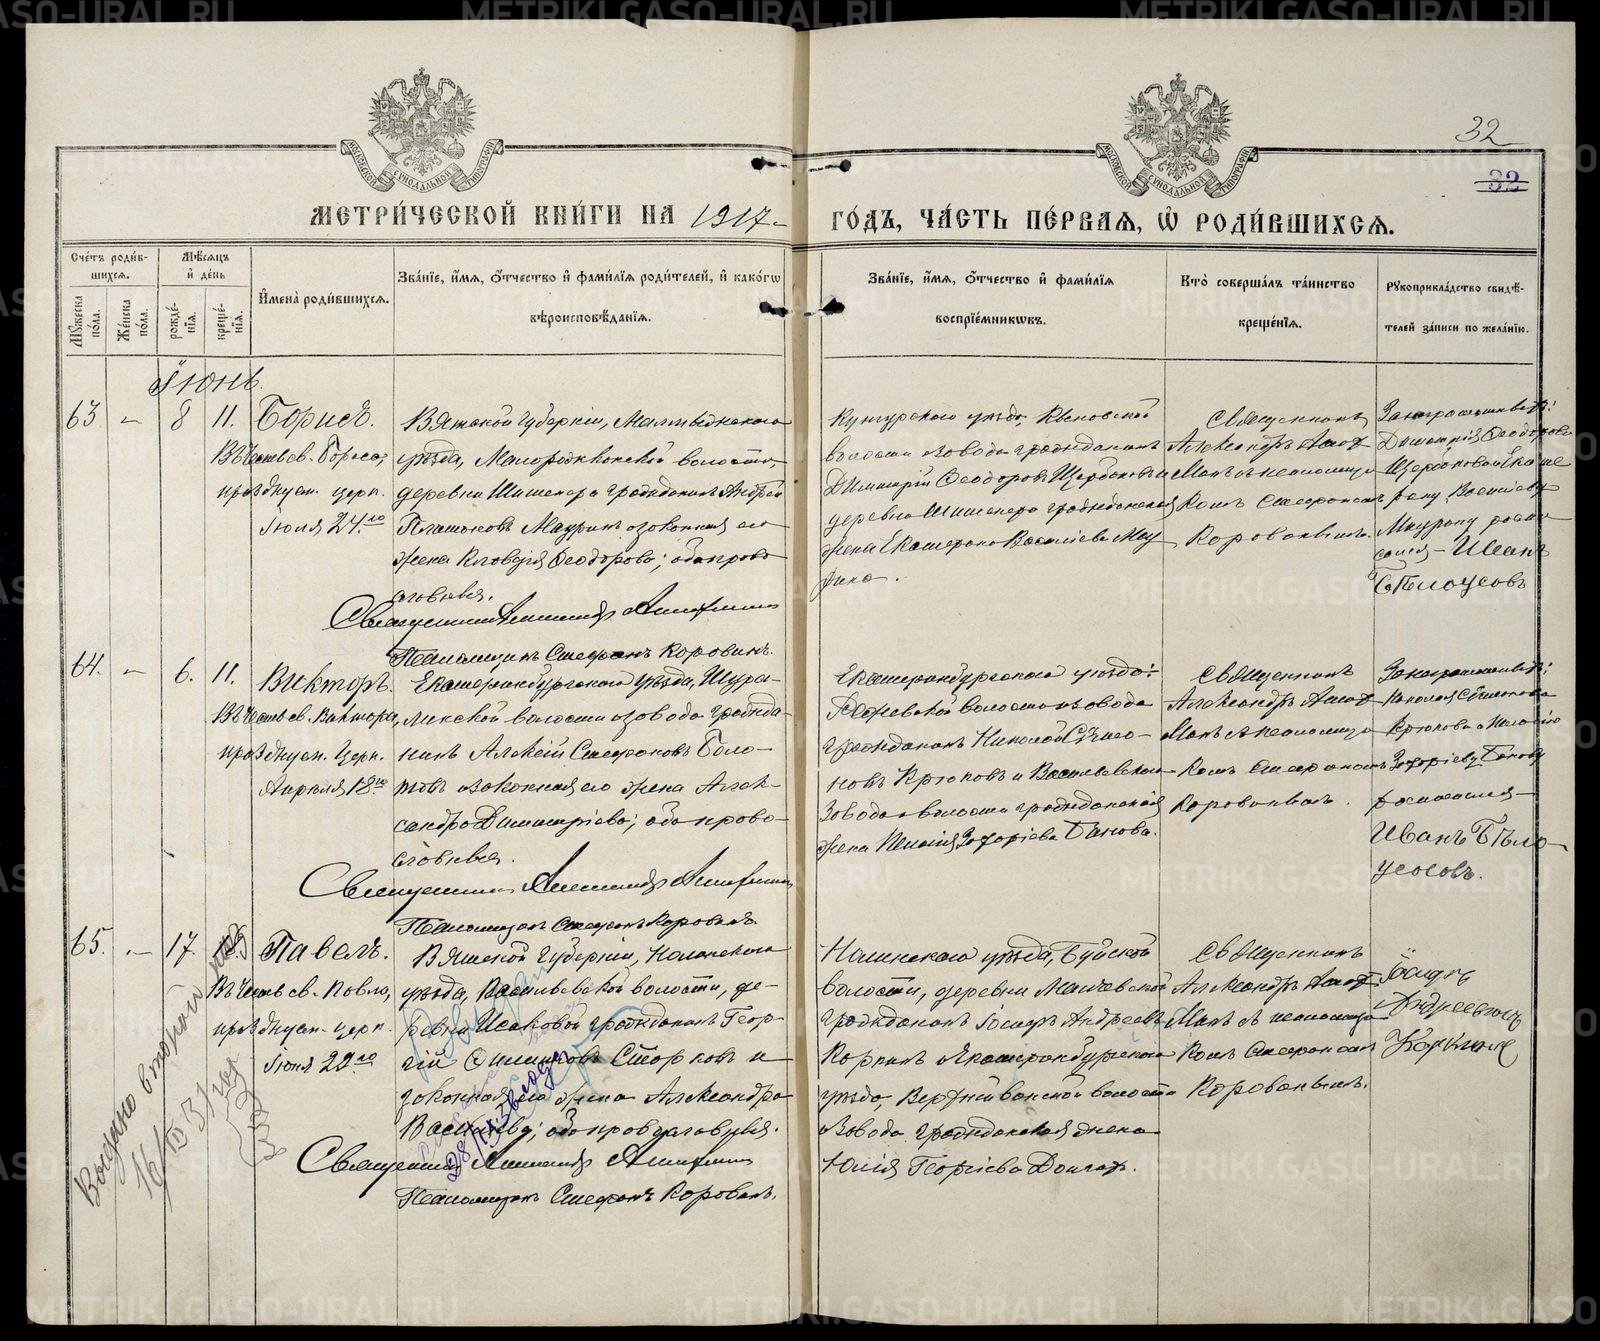 METRIKI.GASO-URAL.RU
32
32
МОСКОВСКОЙ СѴНОДАЛЬНОЙ ТИПОГРАФІИ
МОСКОВСКОЙ СѴНОДАЛЬНОЙ ТИПОГРАФІИ
МЕТРИ́ЧЕСКОЙ КНИ́ГИ НА 1917 ГО́ДЪ, ЧА́СТЬ ПЕ́РВАЯ, Ѡ РОДИ́ВШИХСЯ.
Сче́тъ роди́в-
шихся.
Мѣ́сяцъ
и҆ де́нь
Мꙋ́жеска по́ла.
Же́нска по́ла.
рожде́нїѧ.
креще́нїѧ.
И҆мена̀ роди́вшихся.
Зва́нїе, и҆́мя, ѻ҆́тчество и҆ фами́лїя роди́телей, и҆ како́гѡ
вѣроисповѣ́данїя.
Зва́нїе, и҆́мя, ѻ҆́тчество и҆ фами́лїя
воспрїе́мникѡвъ.
Кто̀ соверша́лъ та́инство
креще́нїя.
Рꙋкоприкла́дство свидѣ́-
телей за́писи по жела́нїю.
Іюнь.
63 – 8 11. Борисъ.
Въ честь св. Бориса,
празднуем. церк.
Іюля 24го
Вятской губерніи, Малмыжскаго
уѣзда, волости,
деревни Шишенера гражданинъ Андрей
Платоновъ Мауринъ и законная его
жена Клавдія Ѳеодорова; оба право-
славные.
Священникъ Александръ
Псаломщикъ Стефанъ Коровинъ.
Кунгурскаго уѣзда,
волости и завода гражданинъ
Димитрій Ѳеодоровъ Щербаковъ и
деревни Шишенера гражданская
жена Екатерина Васильева Мау-
рина.
Священникъ
Александръ
съ псаломщи-
комъ Стефаномъ
Коровинымъ.
За неграмотныхъ:
Димитрія Ѳеодорова
Щербакова и Екате-
рину Васильеву
Маурину роспи-
сался – Иванъ
Бѣлоусовъ
64. – 6. 11. Викторъ.
Въ честь св. Виктора,
празднуем. церк.
Апрѣля 18го
Екатеринбургскаго уѣзда, Шура-
линской волости и завода гражда-
нинъ Алексій Стефановъ Боло-
товъ и законная его жена Алек-
сандра Димитріева; оба право-
славные.
Священникъ Александръ
Псаломщикъ Стефанъ Коровинъ.
Екатеринбургскаго уѣзда:
Режевской волости и завода
гражданинъ Николай Симо-
новъ Крюковъ и Васильевской
завода и волости гражданская
жена Пелагія Захаріева Банова.
Священникъ
Александръ
съ псаломщи-
комъ Стефаномъ
Коровинымъ.
За неграмотныхъ:
Николая Симонова
Крюкова и Пелагію
Захаріеву Банову
росписался –
Иванъ Бѣло-
усовъ.
65. – 17. Павелъ.
Въ честь св. Павла,
празднуем. церк.
Іюня 29го
Вятской губерніи, Нолинскаго
уѣзда, Васильевской волости, де-
ревни Исаковой гражданинъ Геор-
гій и
законная его жена Александра
Васильева; оба православные.
Священникъ Александръ
Псаломщикъ Стефанъ Коровинъ.
Нолинскаго уѣзда, Буйской
волости, деревни
гражданинъ Іосифъ Андреевъ
Коркинъ и Екатеринбургскаго
уѣзда, Верхнейвинской волости
и завода гражданская жена
Юлія Георгіева
Священникъ
Александръ
съ псаломщи-
комъ Стефаномъ
Коровинымъ.
Іосифъ
Андреевичъ
Коркинъ
Выдано вторично
16/XI 31 года